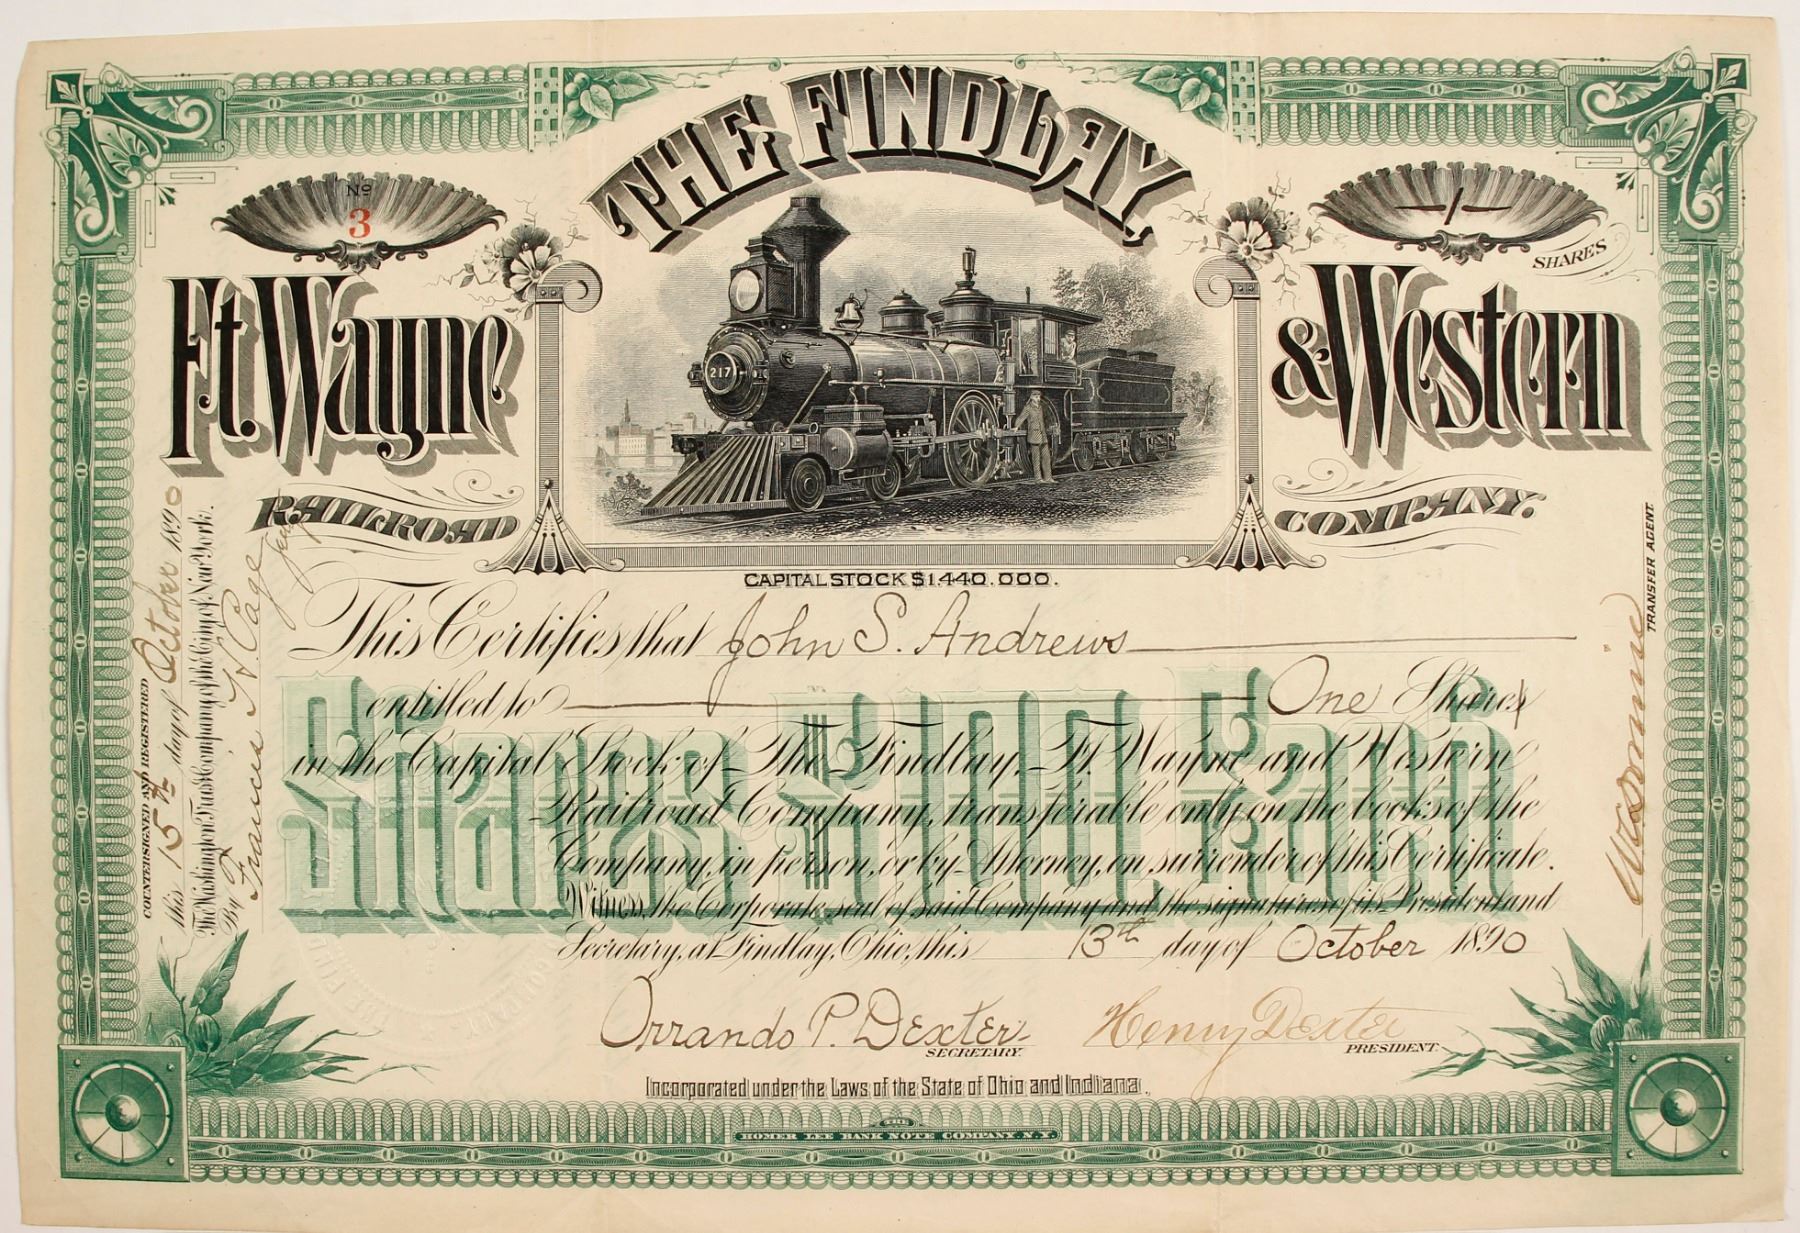 THE FINDLAY,
No
3
1
SHARES
Ft. Wayne
& Western
217
RAILROAD
COMPANY.
CAPITAL STOCK $1.440.000.
This Certifies that John S. Andrews
entitled to One Shares
in the Capital Stock of The Findlay, Ft. Wayne and Western
Railroad Company, transferable only on the books of the
Company, in person, or by Attorney, on surrender of this Certificate.
Witness, the Corporate seal of said Company and the signatures of its President and
Secretary, at Findlay, Ohio, this 13th day of October 1890
Shares $100 Each
Orrando P. Dexter
SECRETARY.
Henry Dexter
PRESIDENT.
Incorporated under the Laws of the State of Ohio and Indiana.
THE
HOMER LEE BANK NOTE COMPANY, N.Y.
COUNTERSIGNED AND REGISTERED
this 15th day of October 1890
The Washington Trust Company of the City of New York.
By Francis H. Page
TRANSFER AGENT.